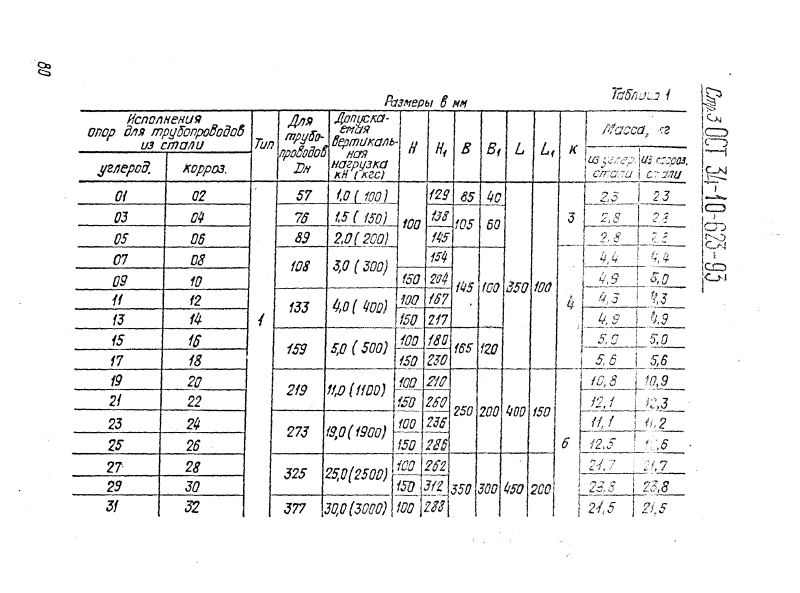 80
Размеры в мм
Таблица 1
Стр.3 ОСТ 34-10-623-93
Исполнения опор для трубопроводов из стали | Тип | Для трубопроводов Dн | Допускаемая вертикальная нагрузка кН (кгс) | H | H₁ | B | B₁ | L | L₁ | К | Масса, кг
углерод. | корроз. | из углер. стали | из корроз. стали
01 02 1 57 1,0 (100) 100 129 85 40 350 100 3 2,3 2,3
03 04 76 1,5 (150) 138 105 60 2,8
05 06 89 2,0 (200) 145 2,8
07 08 108 3,0 (300) 154 145 100 4 4,4 4,4
09 10 150 204 4,9 5,0
11 12 133 4,0 (400) 100 167 4,3 4,3
13 14 150 217 4,9 4,9
15 16 159 5,0 (500) 100 180 165 120 5,0 5,0
17 18 150 230 5,6 5,6
19 20 219 11,0 (1100) 100 210 250 200 400 150 6 10,8 10,9
21 22 150 260 12,1 12,3
23 24 273 19,0 (1900) 100 236 11,1
25 26 150 286 12,5
27 28 325 25,0 (2500) 100 262 350 300 450 200 21,7 21,7
29 30 150 312 23,8 23,8
31 32 377 30,0 (3000) 100 288 21,5 21,5